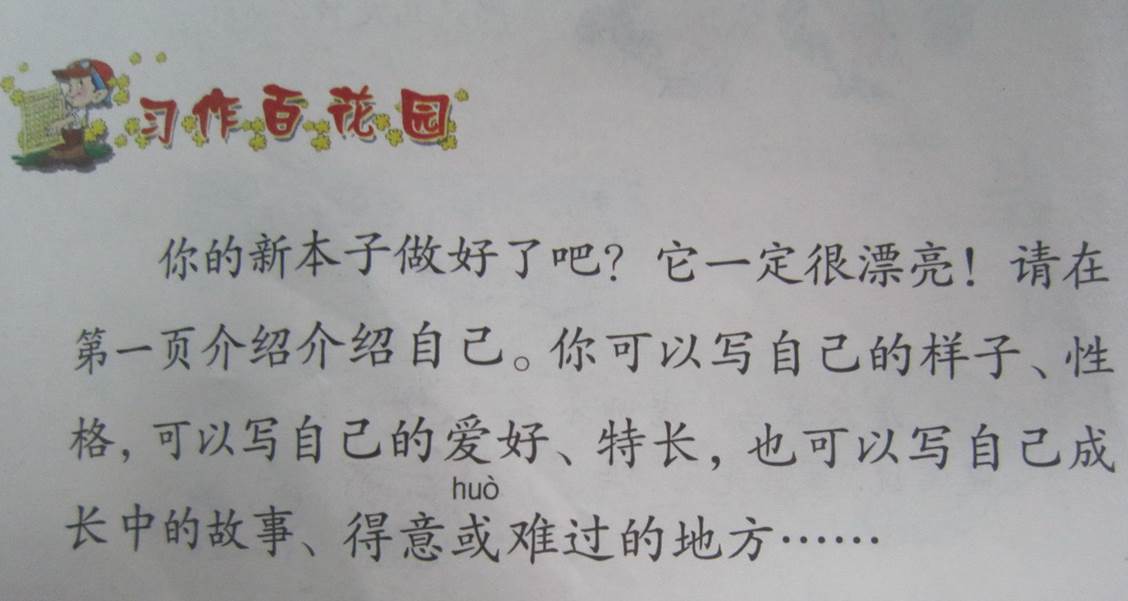 习作百花园
你的新本子做好了吧？它一定很漂亮！请在
第一页介绍介绍自己。你可以写自己的样子、性
格，可以写自己的爱好、特长，也可以写自己成
huò
长中的故事、得意或难过的地方……